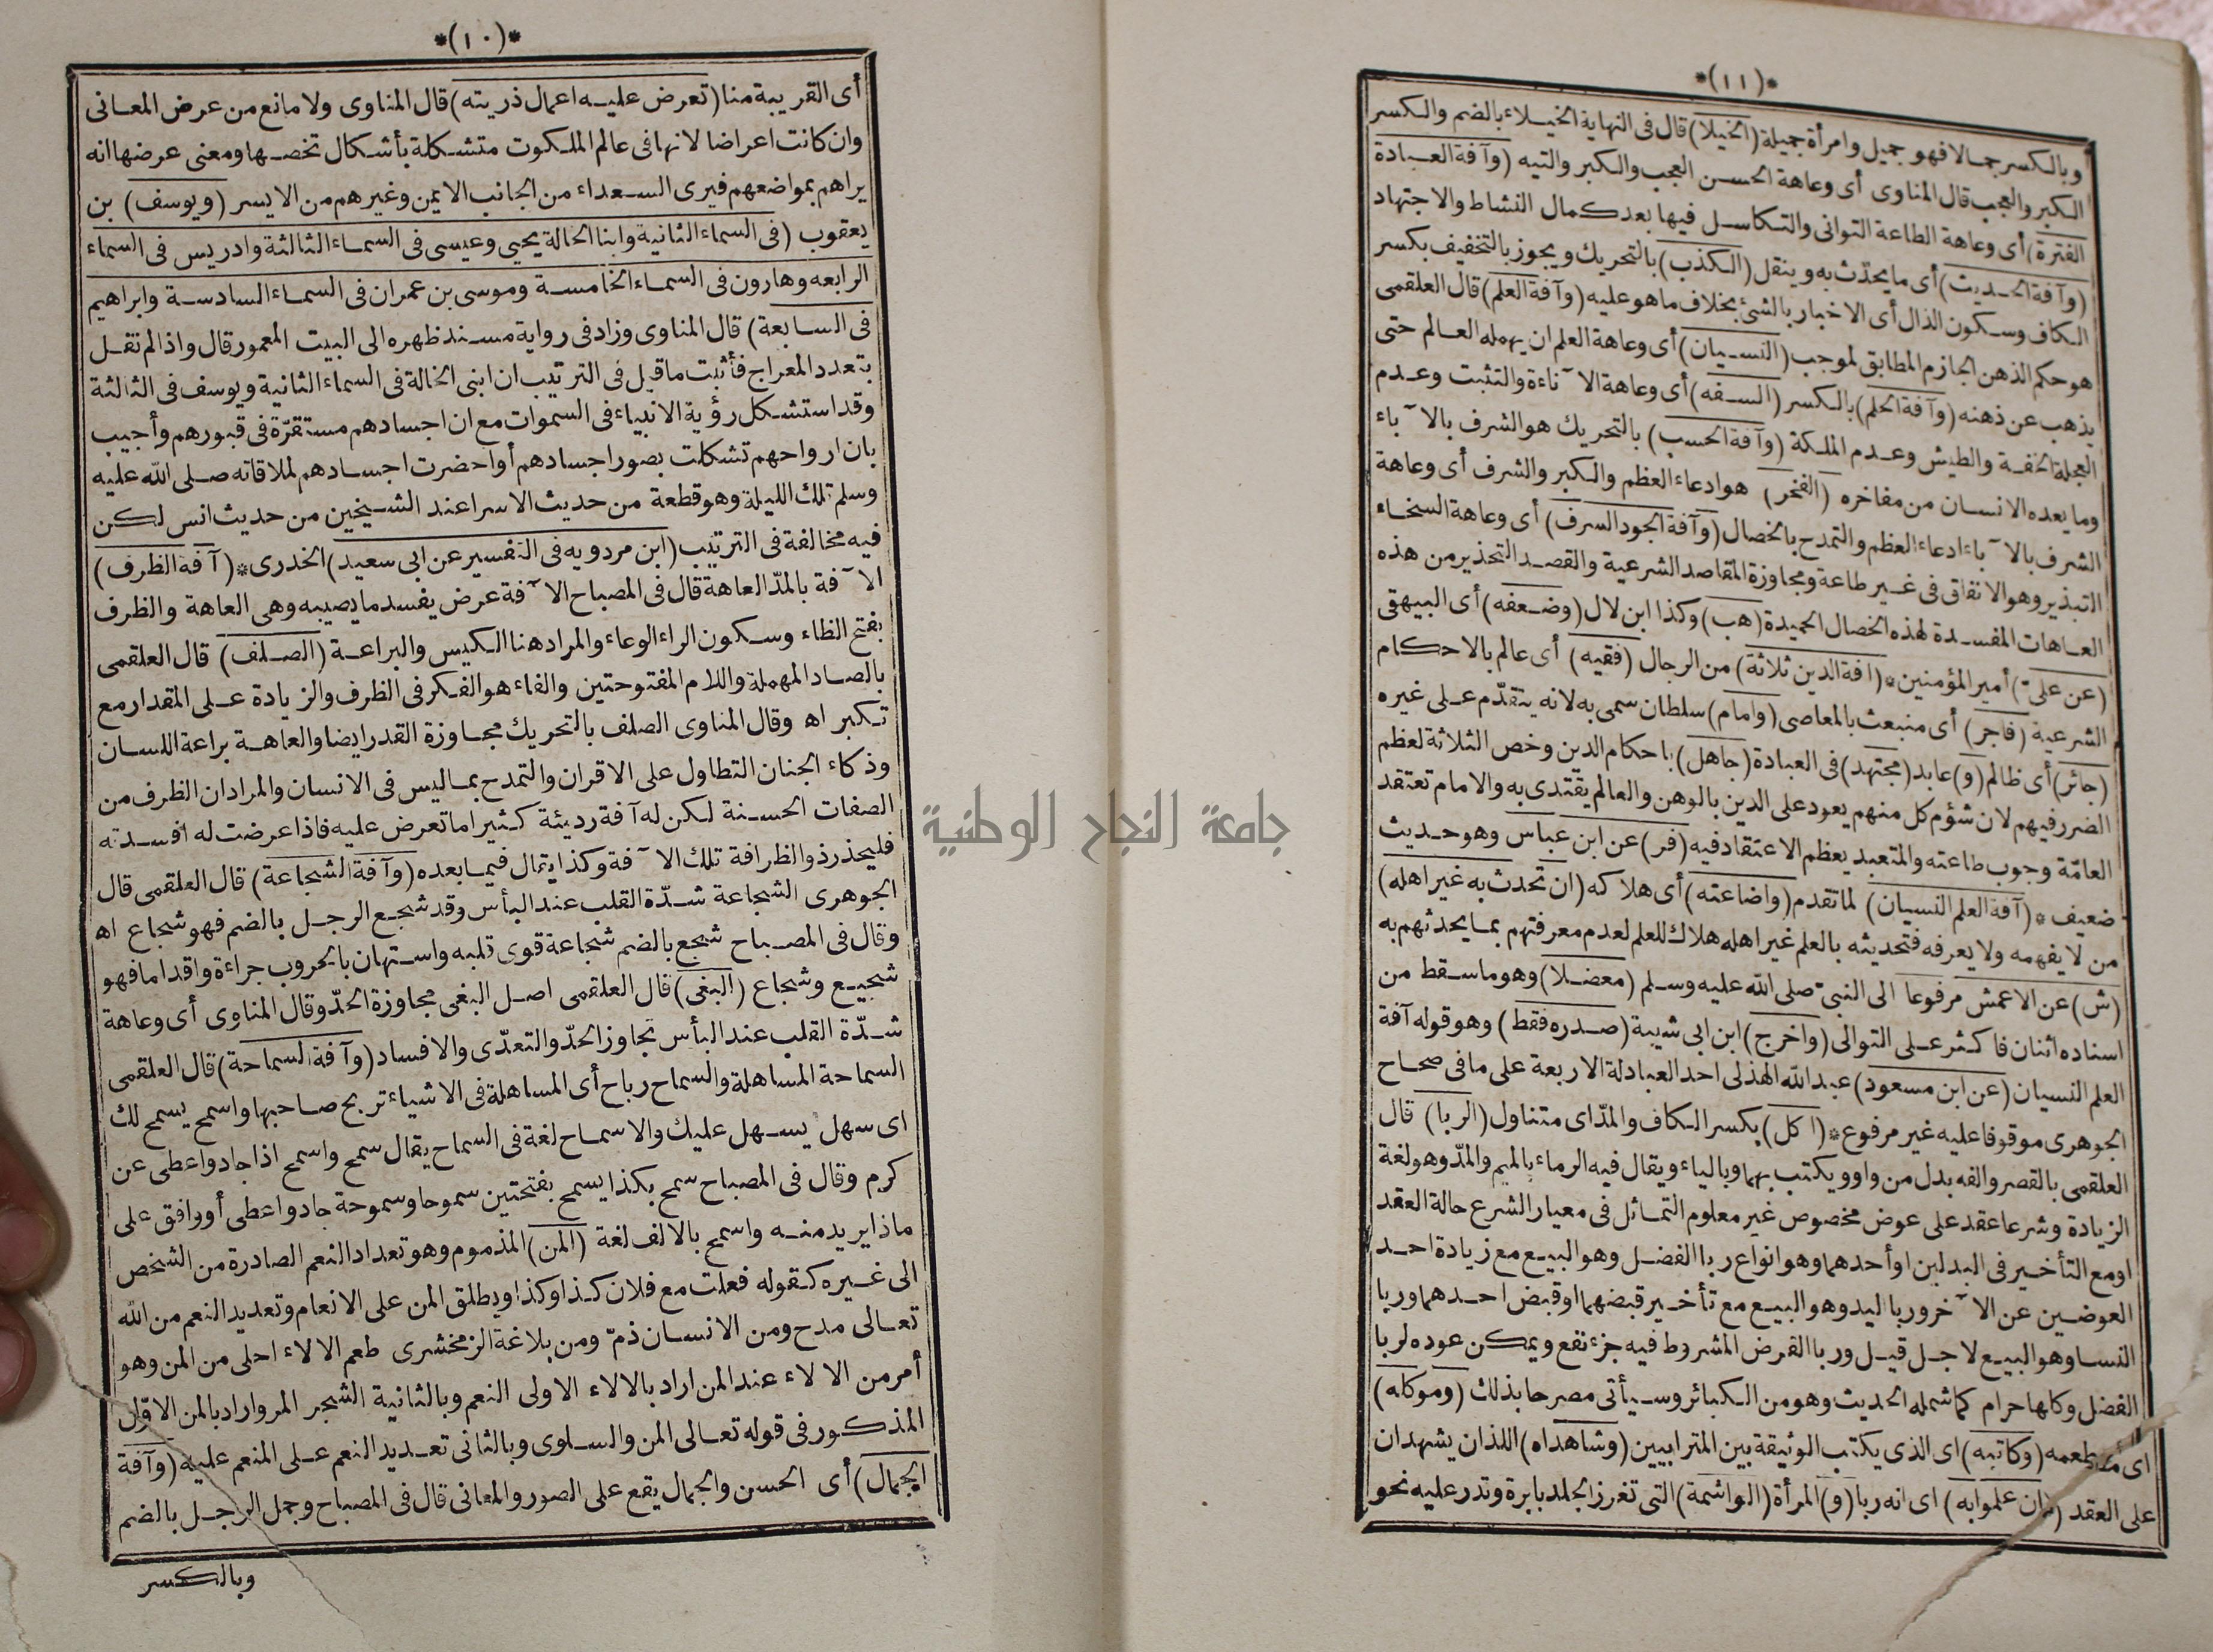 *(١٠)*
أى القريبة منا (تعرض عليه اعمال ذريته) قال المناوى ولا مانع من عرض المعانى
وان كانت اعراضا لانها فى عالم الملكوت متشكلة بأشكال تخصها ومعنى عرضها انه
يراهم بمواضعهم فيرى السعداء من الجانب الايمن وغيرهم من الايسر (ويوسف) بن
يعقوب (فى السماء الثانية وابنا الخالة يحيى وعيسى فى السماء الثالثة وادريس فى السماء
الرابعه وهارون فى السماء الخامسة وموسى بن عمران فى السماء السادسة وابراهيم
فى السابعة) قال المناوى وزاد فى رواية مسند ظهره الى البيت المعمور قال واذا لم نقل
بتعدد المعراج فأثبت ما قيل فى الترتيب ان ابنى الخالة فى السماء الثانية ويوسف فى الثالثة
وقد استشكل رؤية الانبياء فى السموات مع ان اجسادهم مستقرّة فى قبورهم وأجيب
بان ارواحهم تشكلت بصور اجسادهم أو احضرت اجسادهم لملاقاته صلى الله عليه
وسلم تلك الليلة وهو قطعة من حديث الاسرا عند الشيخين من حديث انس لكن
فيه مخالفة فى الترتيب (ابن مردويه فى التفسير عن ابى سعيد) الخدرى * (آفة الظرف)
الآفة بالمدّ العاهة قال فى المصباح الآفة عرض يفسد ما يصيبه وهى العاهة والظرف
بفتح الظاء وسكون الراء الوعاء والمراد هنا الكيس والبراعة (الصلف) قال العلقمى
بالصاد المهملة واللام المفتوحتين والفاء هو الفكر فى الظرف والزيادة على المقدار مع
تكبر اه وقال المناوى الصلف بالتحريك مجاوزة القدر ايضا والعاهة براعة اللسان
وذكاء الجنان التطاول على الاقران والتمدح بما ليس فى الانسان والمراد ان الظرف من
الصفات الحسنة لكن له آفة رديئة كثيرا ما تعرض عليه فاذا عرضت له افسدته
فليحذر ذو الظرافة تلك الآفة وكذا يقال فيما بعده (وآفة الشجاعة) قال العلقمى قال
الجوهرى الشجاعة شدّة القلب عند البأس وقد شجع الرجل بالضم فهو شجاع اه
وقال فى المصباح شجع بالضم شجاعة قوى قلبه واستهان بالحروب جراءة واقداما فهو
شجيع وشجاع (البغى) قال العلقمى اصل البغى مجاوزة الحدّ وقال المناوى أى وعاهة
شدّة القلب عند البأس تجاوز الحدّ والتعدّى والافساد (وآفة السماحة) قال العلقمى
السماحة المساهلة والسماح رباح أى المساهلة فى الاشياء تربح صاحبها واسمح يسمح لك
اى سهل يسهل عليك والاسماح لغة فى السماح يقال سمح واسمح اذا جاد واعطى عن
كرم وقال فى المصباح سمح بكذا يسمح بفتحتين سموحا وسموحة جاد واعطى أو وافق على
ماذا يريد منه واسمح بالالف لغة (المن) المذموم وهو تعداد النعم الصادرة من الشخص
الى غيره كقوله فعلت مع فلان كذا وكذا ويطلق المن على الانعام وتعديد النعم من الله
تعالى مدح ومن الانسان ذمّ ومن بلاغة الزمخشرى طعم الالاء احلى من المن وهو
أمر من الالاء عند المن اراد بالالاء الاولى النعم وبالثانية الشجر المر واراد بالمن الاوّل
المذكور فى قوله تعالى المن والسلوى وبالثانى تعديد النعم على المنعم عليه (وآفة
الجمال) أى الحسن والجمال يقع على الصور والمعانى قال فى المصباح وجمل الرجل بالضم
وبالكسر
*(١١)*
وبالكسر جمالا فهو جميل وامرأة جميلة (الخيلا) قال فى النهاية الخيلاء بالضم والكسر
الكبر والعجب قال المناوى أى وعاهة الحسن العجب والكبر والتيه (وآفة العبادة
الفترة) أى وعاهة الطاعة التوانى والتكاسل فيها بعد كمال النشاط والاجتهاد
(وآفة الحديث) أى ما يحدّث به وينقل (الكذب) بالتحريك ويجوز بالتخفيف بكسر
الكاف وسكون الذال أى الاخبار بالشئ بخلاف ما هو عليه (وآفة العلم) قال العلقمى
هو حكم الذهن الجازم المطابق لموجب (النسيان) أى وعاهة العلم ان يهمله العالم حتى
يذهب عن ذهنه (وآفة الحلم) بالكسر (السفه) أى وعاهة الآناءة والتثبت وعدم
العجلة الخفة والطيش وعدم الملكة (وآفة الحسب) بالتحريك هو الشرف بالآباء
وما يعده الانسان من مفاخره (الفخر) هو ادعاء العظم والكبر والشرف أى وعاهة
الشرف بالآباء ادعاء العظم والتمدح بالخصال (وآفة الجود السرف) أى وعاهة السخاء
التبذير وهو الانفاق فى غير طاعة ومجاوزة المقاصد الشرعية والقصد التحذير من هذه
العاهات المفسدة لهذه الخصال الحميدة (هب) وكذا ابن لال (وضعفه) أى البيهقى
(عن علىّ) أمير المؤمنين * (افة الدين ثلاثة) من الرجال (فقيه) أى عالم بالاحكام
الشرعية (فاجر) أى منبعث بالمعاصى (وامام) سلطان سمى به لانه يتقدّم على غيره
(جائر) أى ظالم (و) عابد (مجتهد) فى العبادة (جاهل) باحكام الدين وخص الثلاثة لعظم
الضرر فيهم لان شؤم كل منهم يعود على الدين بالوهن والعالم يقتدى به والامام تعتقد
العامّة وجوب طاعته والمتعبد يعظم الاعتقاد فيه (فر) عن ابن عباس وهو حديث
ضعيف * (آفة العلم النسيان) لما تقدم (واضاعته) أى هلاكه (ان تحدث به غير اهله)
من لا يفهمه ولا يعرفه فتحديثه بالعلم غير اهله هلاك للعلم لعدم معرفتهم بما يحدثهم به
(ش) عن الاعمش مرفوعا الى النبىّ صلى الله عليه وسلم (معضلا) وهو ما سقط من
اسناده اثنان فاكثر على التوالى (واخرج) ابن ابى شيبة (صدره فقط) وهو قوله آفة
العلم النسيان (عن ابن مسعود) عبد الله الهذلى احد العبادلة الاربعة على ما فى صحاح
الجوهرى موقوفا عليه غير مرفوع * (اكل) بكسر الكاف والمدّ اى متناول (الربا) قال
العلقمى بالقصر والفه بدل من واو ويكتب بهما وبالياء ويقال فيه الرماء بالميم والمدّ وهو لغة
الزيادة وشرعا عقد على عوض مخصوص غير معلوم التماثل فى معيار الشرع حالة العقد
اومع التأخير فى البدلين او أحدهما وهو انواع ربا الفضل وهو البيع مع زيادة احد
العوضين عن الآخر وربا اليد وهو البيع مع تأخير قبضهما او قبض احدهما وربا
النسا وهو البيع لاجل قيل وربا القرض المشروط فيه جزء نفع ويمكن عوده لربا
الفضل وكلها حرام كما شمله الحديث وهو من الكبائر وسيأتى مصرحا بذلك (وموكله)
اى مطعمه (وكاتبه) اى الذى يكتب الوثيقة بين المترابيين (وشاهداه) اللذان يشهدان
على العقد (ان علموا به) اى انه ربا (و) المرأة (الواشمة) التى تغرز الجلد بابرة وتذر عليه نحو
جامعة النجاح الوطنية